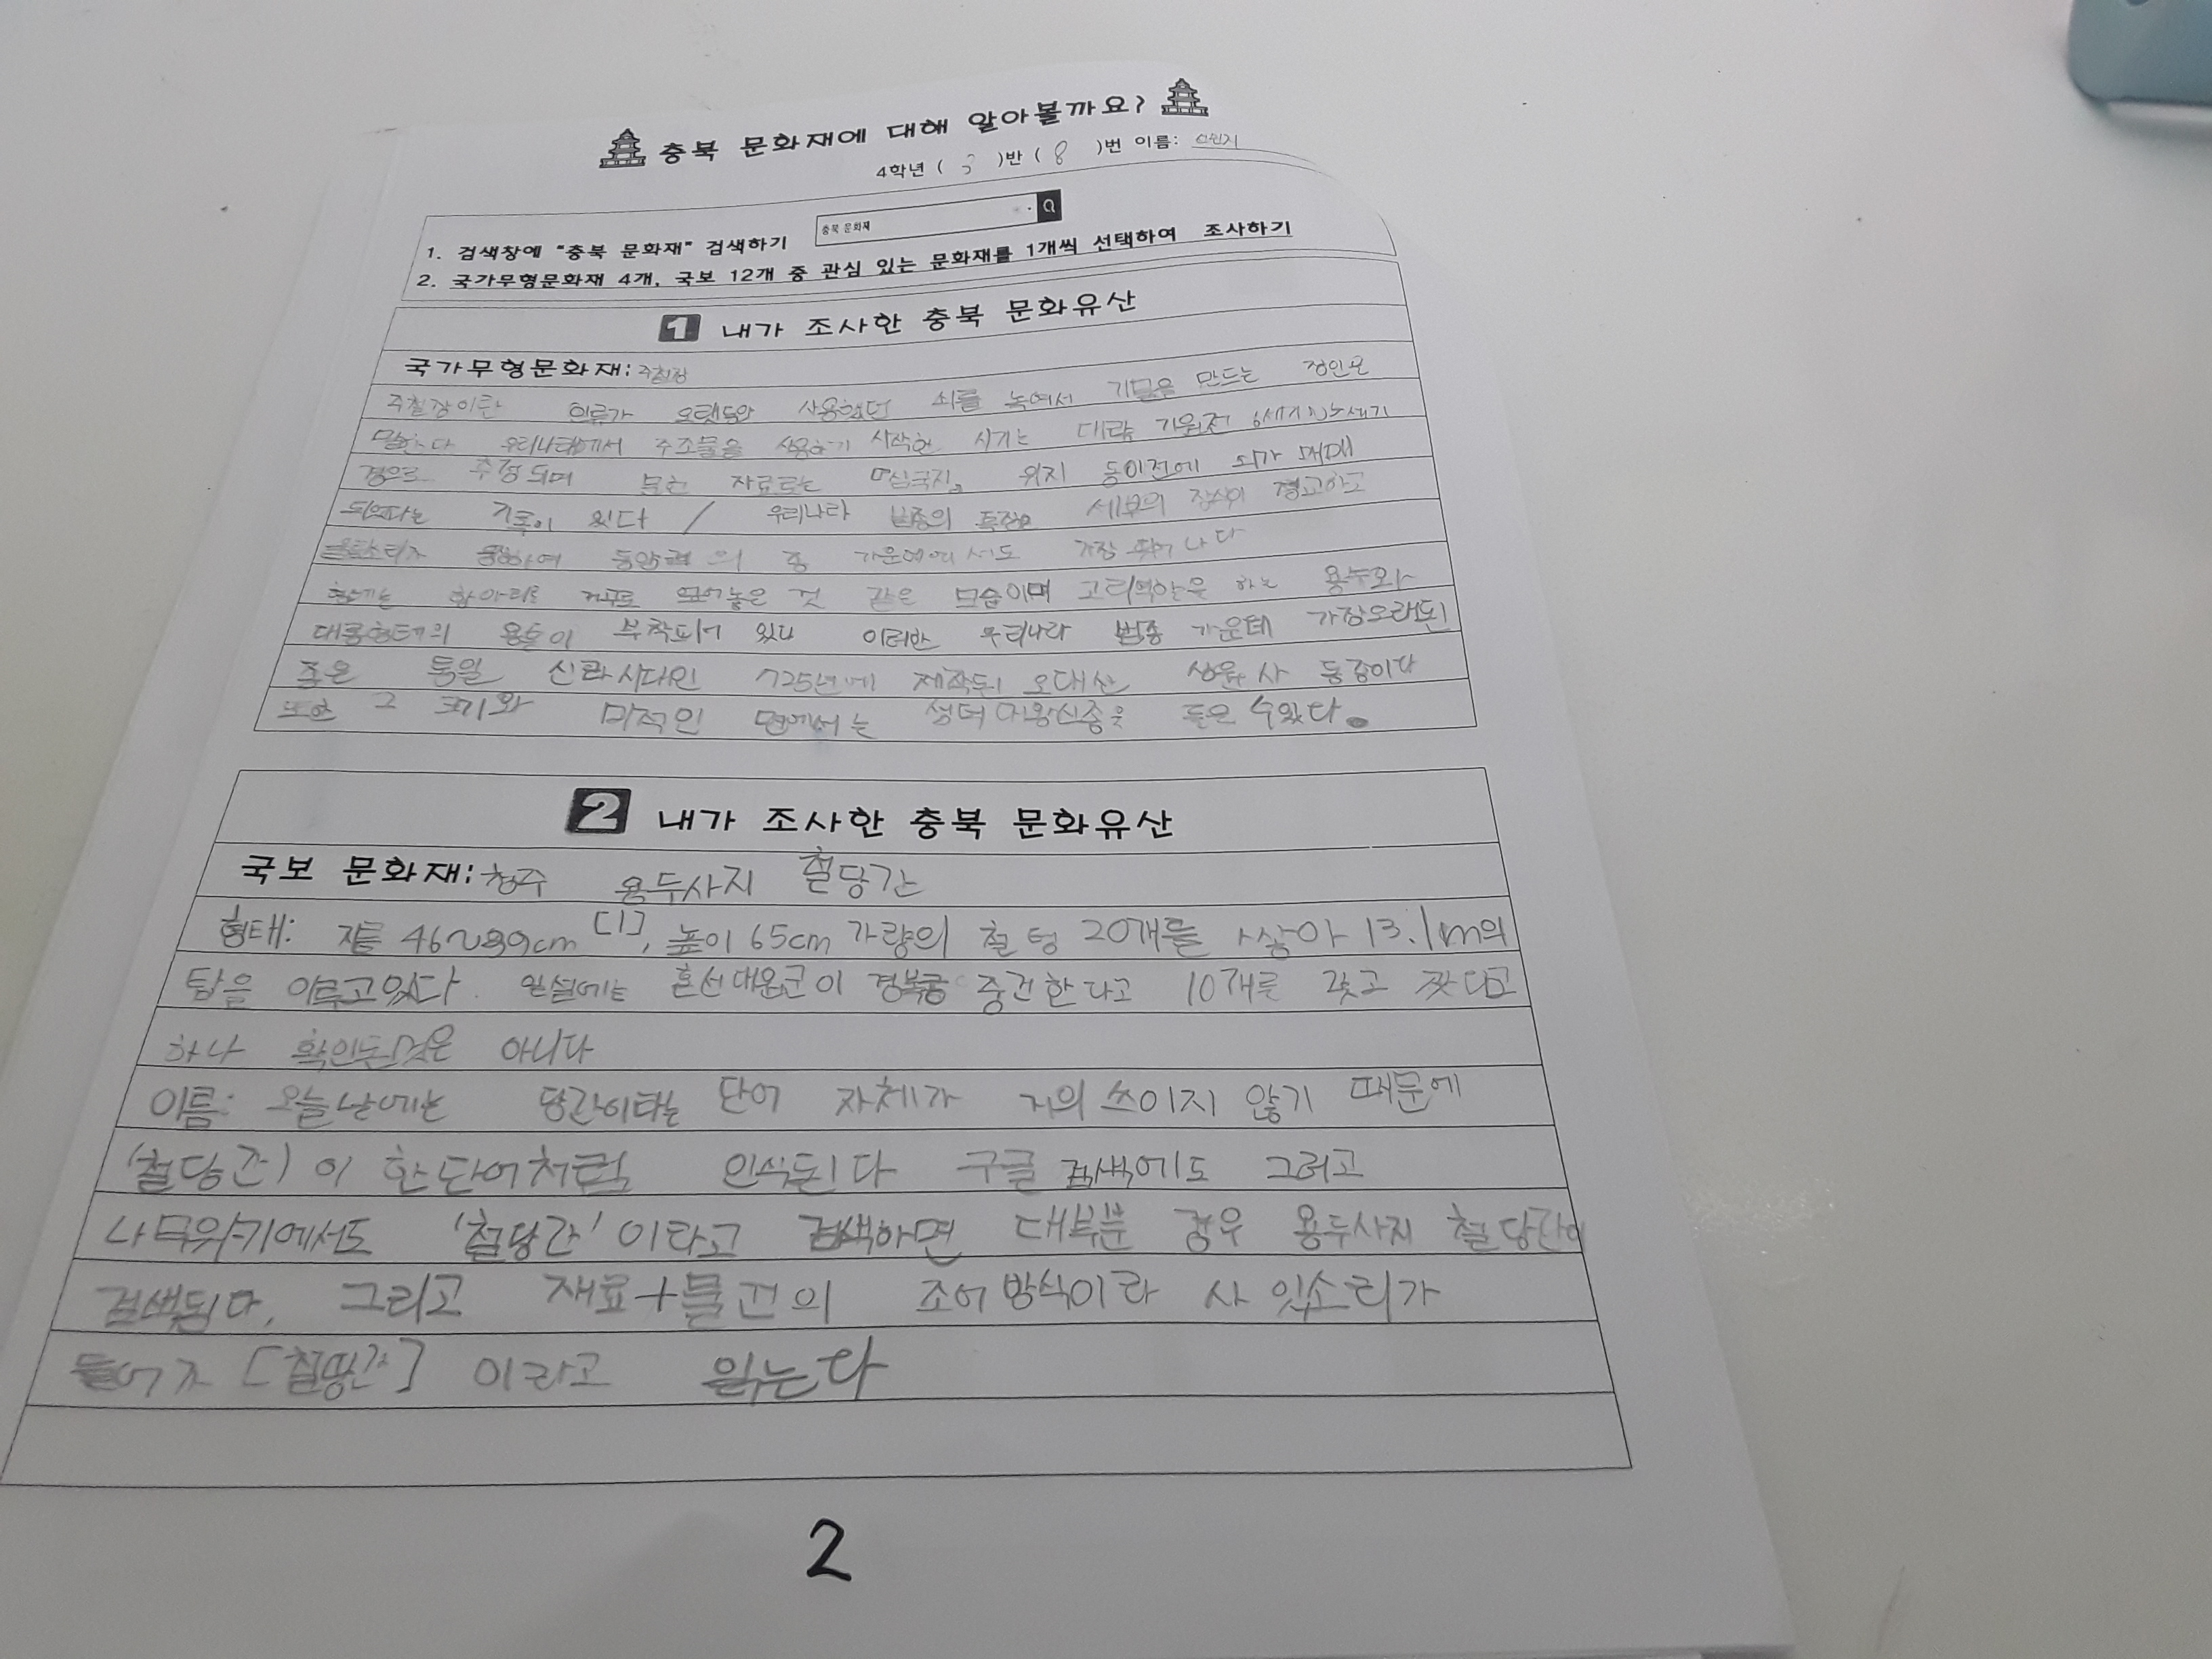 충북 문화재에 대해 알아볼까요?
4학년 ( 3 )반 ( 8 )번 이름:
1. 검색창에 "충북 문화재" 검색하기
충북 문화재
2. 국가무형문화재 4개, 국보 12개 중 관심 있는 문화재를 1개씩 선택하여 조사하기
1 내가 조사한 충북 문화유산
국가무형문화재: 주철장
주철장이란 인류가 오랫동안 사용했던 쇠를 녹여서 기물을 만드는 장인을
말한다 우리나라에서 주조물을 사용하기 시작한 시기는 대략 기원전
경으로 추정되며 자료로는 『삼국지』 위지 동이전에 쇠가 매매
되었다는 기록이 있다 / 우리나라 범종의 특징은 세부의 장식이 정교하고
동양권의 종 가운데에서도 가장 뛰어나다
형태는 항아리를 거꾸로 엎어놓은 것 같은 모습이며 고리역할을 하는 용뉴와
대롱형태의 용통이 부착되어 있다 이러한 우리나라 범종 가운데 가장오래된
종은 통일 신라시대인 725년에 제작된 오대산 상원사 동종이다
또한 그 크기와 미적인 면에서는 성덕대왕신종을 들은 수있다.
2 내가 조사한 충북 문화유산
국보 문화재: 청주 용두사지 철당간
형태: 지름 46~39cm [1], 높이 65cm 가량의 철 텅 20개를 쌓아 13.1m의
탑을 이루고있다. 일설에는 흥선대원군이 경복궁 중건한다고 10개를 갖고 갔다고
하나 확인된것은 아니다
이름: 오늘날에는 당간이라는 단어 자체가 거의 쓰이지 않기 때문에
'철당간'이 한단어처럼 인식된다 구글 검색에도 그러고
나무위키에서도 '철당간'이라고 검색하면 대부분 경우 용두사지 철당간이
검색된다. 그리고 재료+물건의 조어방식이라 사잇소리가
들어가 [철땅간] 이라고 읽는다
2